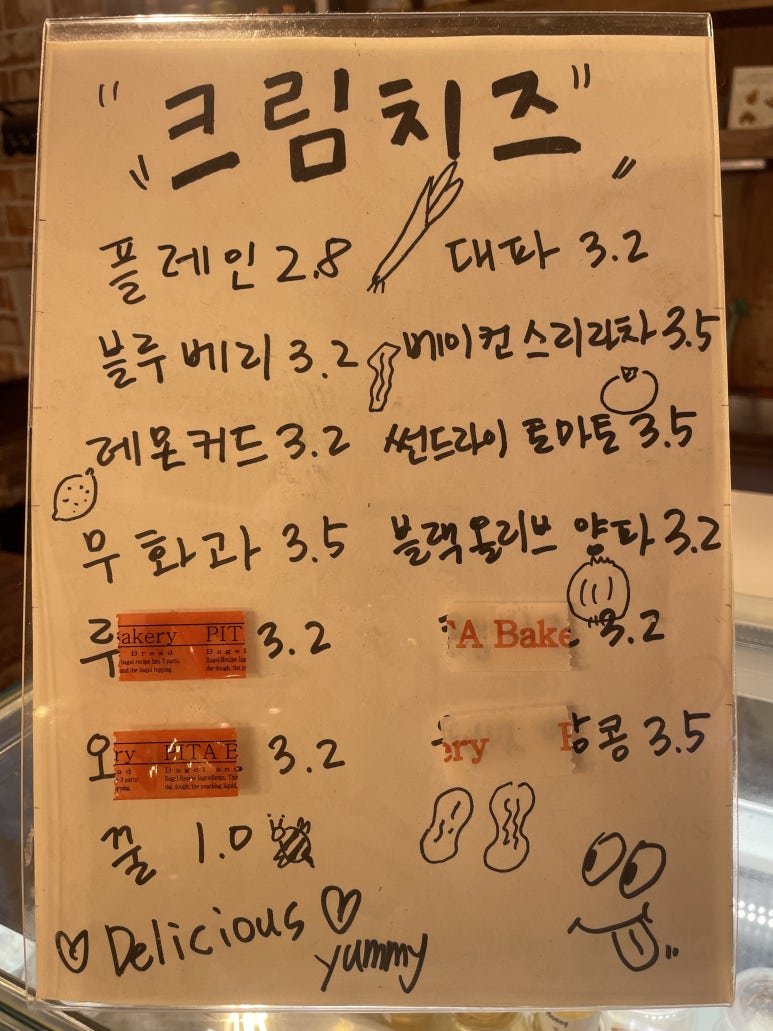 "크림치즈"
플레인 2.8 대파 3.2
블루베리 3.2 베이컨스리라차 3.5
레몬커드 3.2 썬드라이 토마토 3.5
무화과 3.5 블랙올리브 양파 3.2
루 3.2 3.2
akery PIT
Bread Bagel
TA Bake
오 3.2 콩 3.5
ry PITA E
Bagel and
ery
꿀 1.0
Delicious
yummy